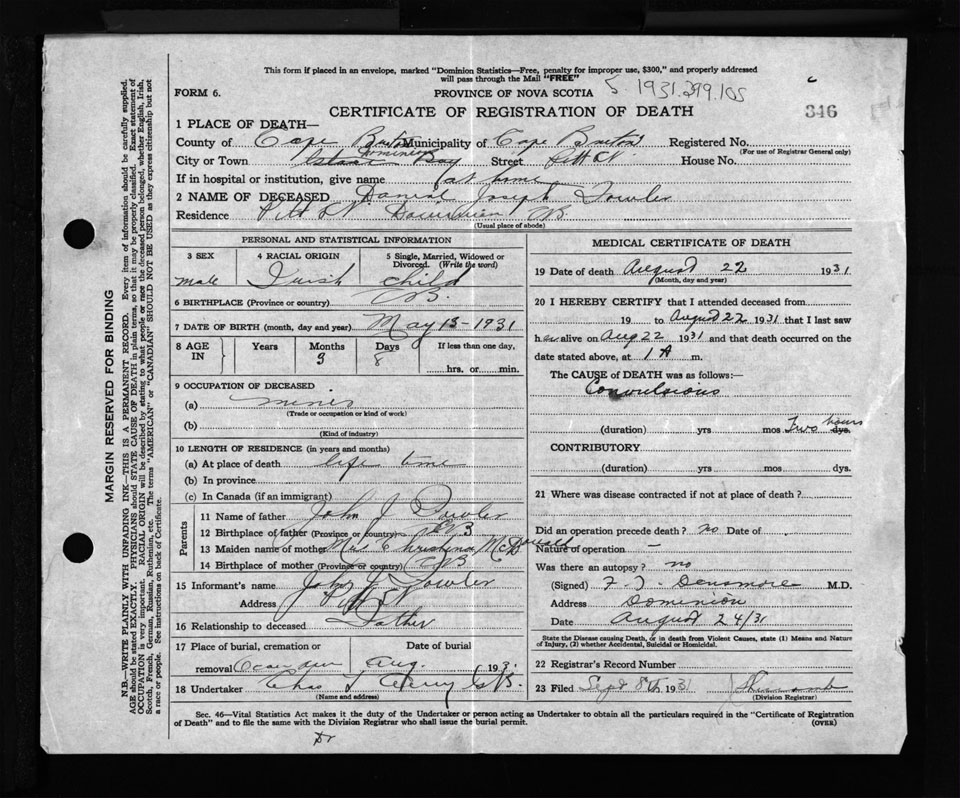 This form if placed in an envelope, marked "Dominion Statistics—Free, penalty for improper use, $300," and properly addressed
will pass through the Mail "FREE"
FORM 6.
PROVINCE OF NOVA SCOTIA
5 1931.299.105
CERTIFICATE OF REGISTRATION OF DEATH
346
1 PLACE OF DEATH—
County of Cape Breton Municipality of Cape Breton Registered No.
(For use of Registrar General only)
City or Town Dominion Bay Street Pitt St House No.
If in hospital or institution, give name at home
2 NAME OF DECEASED Daniel Joseph Fowler
Residence Pitt St Dominion CB
(Usual place of abode)
PERSONAL AND STATISTICAL INFORMATION
3 SEX 4 RACIAL ORIGIN 5 Single, Married, Widowed or
Divorced. (Write the word)
male Irish child
6 BIRTHPLACE (Province or country) CB.
7 DATE OF BIRTH (month, day and year) May 13-1931
8 AGE IN Years Months Days If less than one day,
3 8
hrs. or min.
9 OCCUPATION OF DECEASED
(a)
(Trade or occupation or kind of work)
(b)
(Kind of industry)
10 LENGTH OF RESIDENCE (in years and months)
(a) At place of death life time
(b) In province
(c) In Canada (if an immigrant)
Parents
11 Name of father John J Fowler
12 Birthplace of father (Province or country) CB
13 Maiden name of mother Mrs Christena McDonald
14 Birthplace of mother (Province or country) CB
15 Informant's name John J Fowler
Address Pitt St
16 Relationship to deceased Father
17 Place of burial, cremation or Date of burial
removal Aug. 193
18 Undertaker Chas
(Name and address)
MEDICAL CERTIFICATE OF DEATH
19 Date of death August 22 1931
(Month, day and year)
20 I HEREBY CERTIFY that I attended deceased from
19 to August 22 1931 that I last saw
h alive on Aug 22 1931 and that death occurred on the
date stated above, at 1 A m.
The CAUSE of DEATH was as follows:—
Convulsions
(duration) yrs mos Two hours dys.
CONTRIBUTORY
(duration) yrs mos dys.
21 Where was disease contracted if not at place of death?
Did an operation precede death? no Date of
Nature of operation —
Was there an autopsy? no
(Signed) F. J. Densmore M.D.
Address Dominion
Date August 24/31
State the Disease causing Death, or in death from Violent Causes, state (1) Means and Nature
of Injury, (2) whether Accidental, Suicidal or Homicidal.
22 Registrar's Record Number
23 Filed Sept 8th 1931
(Division Registrar)
Sec. 46—Vital Statistics Act makes it the duty of the Undertaker or person acting as Undertaker to obtain all the particulars required in the "Certificate of Registration
of Death" and to file the same with the Division Registrar who shall issue the burial permit.
(OVER)
Dr
MARGIN RESERVED FOR BINDING
N.B.—WRITE PLAINLY WITH UNFADING INK—THIS IS A PERMANENT RECORD. Every item of information should be carefully supplied.
AGE should be stated EXACTLY. PHYSICIANS should STATE CAUSE OF DEATH in plain terms, so that it may be properly classified. Exact statement of
OCCUPATION is very important. RACIAL ORIGIN will be described by stating to what people or race the deceased person belonged, whether English, Irish,
Scotch, French, German, Russian, Ruthenian, etc. The terms "AMERICAN" or "CANADIAN" SHOULD NOT BE USED as they express citizenship but not
a race or people. See instructions on back of Certificate.